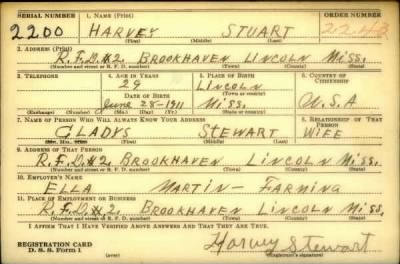 SERIAL NUMBER 1. NAME (Print) ORDER NUMBER
2200 HARVEY STUART 2248
(First) (Middle) (Last)
2. ADDRESS (Print)
R.F.D.#2 BROOKHAVEN LINCOLN MISS.
(Number and street or R. F. D. number) (Town) (County) (State)
3. TELEPHONE 4. AGE IN YEARS 5. PLACE OF BIRTH 6. COUNTRY OF CITIZENSHIP
29 LINCOLN
(Town or county)
DATE OF BIRTH
June 28-1911 MISS. U.S.A
(Exchange) (Number) (Mo.) (Day) (Yr.) (State or country)
7. NAME OF PERSON WHO WILL ALWAYS KNOW YOUR ADDRESS 8. RELATIONSHIP OF THAT PERSON
GLADYS STEWART WIFE
(Mr., Mrs., Miss) (First) (Middle) (Last)
9. ADDRESS OF THAT PERSON
R.F.D.#2 BROOKHAVEN LINCOLN MISS.
(Number and street or R. F. D. number) (Town) (County) (State)
10. EMPLOYER'S NAME
ELLA MARTIN - FARMING
11. PLACE OF EMPLOYMENT OR BUSINESS
R.F.D.#2 BROOKHAVEN LINCOLN MISS.
(Number and street or R. F. D. number) (Town) (County) (State)
I AFFIRM THAT I HAVE VERIFIED ABOVE ANSWERS AND THAT THEY ARE TRUE.
REGISTRATION CARD
D. S. S. Form 1 (over) Harvey Stewart
(Registrant's signature)